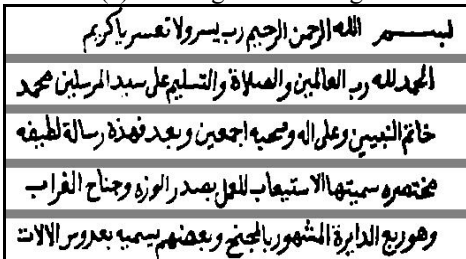 بسم الله الرحمن الرحيم رب يسر ولا تعسر يا كريم
الحمد لله رب العالمين والصلاة والتسليم على سيد المرسلين محمد
خاتم النبيين وعلى اله وصحبه اجمعين وبعد فهذه رسالة لطيفه
مختصره سميتها الاستيعاب للعمل بصدر الوزه وجناح الغراب
وهو ربع الدايرة المشهور بالمجنح وبعضهم يسميه بعدوس الالات